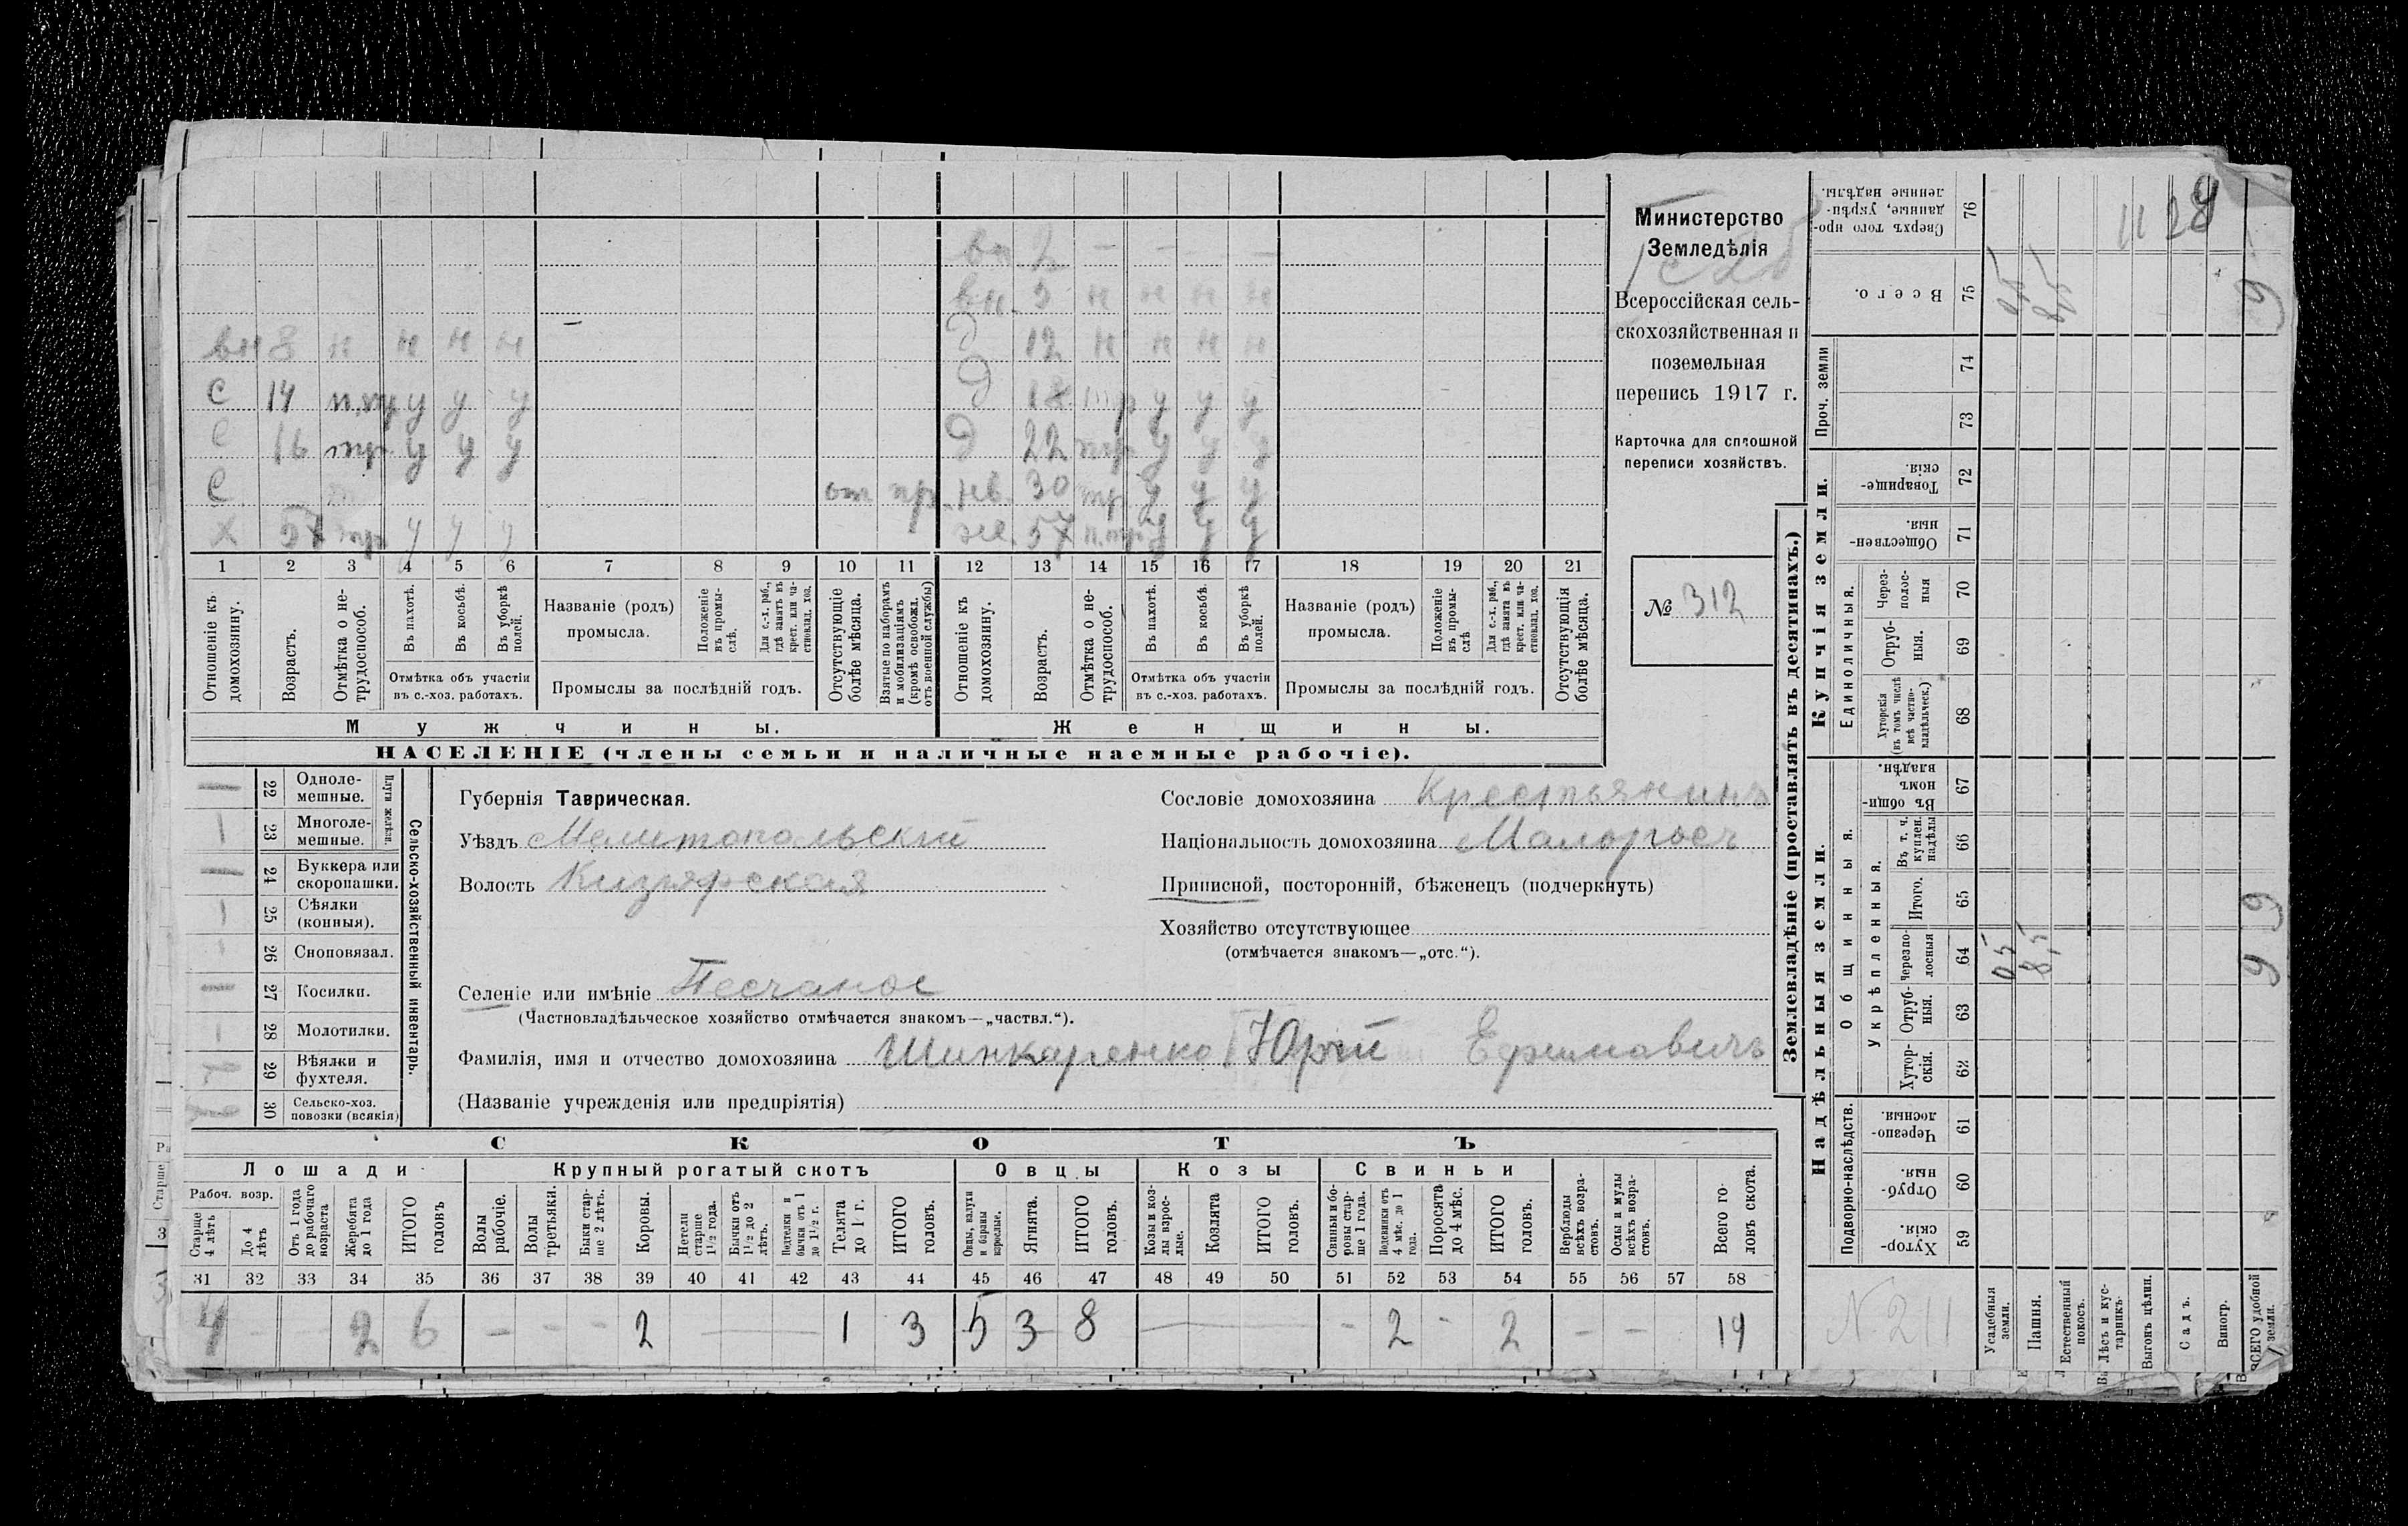 вн 2 — — —
вн. 5 н н н н
вн 8 н н н н — д 12 н н н н
с 14 п.тр у у у д 18 тр у у у
с 16 тр. у у у д 22 тр у у у
с от пр. нв. 30 тр. у у у
х 57 тр у у у же. 57 п.тр. у у у
1 2 3 4 5 6 7 8 9 10 11 12 13 14 15 16 17 18 19 20 21
Отношеніе къ домохозяину.
Возрастъ.
Отмѣтка о не-трудоспособ.
Въ пахотѣ.
Въ косьбѣ.
Въ уборкѣ полей.
Отмѣтка объ участіи въ с.-хоз. работахъ.
Названіе (родъ) промысла.
Положеніе въ промы-слѣ.
Для с.-х. раб., гдѣ занятъ въ крест. или ча-стновлад. хоз.
Промыслы за послѣдній годъ.
Отсутствующіе болѣе мѣсяца.
Взятые по наборамъ и мобилизаціямъ (кромѣ освобожд. отъ военной службы)
Отношеніе къ домохозяину.
Возрастъ.
Отмѣтка о не-трудоспособ.
Въ пахотѣ.
Въ косьбѣ.
Въ уборкѣ полей.
Отмѣтка объ участіи въ с.-хоз. работахъ.
Названіе (родъ) промысла.
Положеніе въ промы-слѣ
Для с.-х. раб., гдѣ занята въ крест. или ча-стновлад. хоз.
Промыслы за послѣдній годъ.
Отсутствующія болѣе мѣсяца.
Мужчины. Женщины.
НАСЕЛЕНІЕ (члены семьи и наличные наемные рабочіе).
Министерство
Земледѣлія
Всероссійская сель-
скохозяйственная и
поземельная
перепись 1917 г.
Карточка для сплошной
переписи хозяйствъ.
№ 312
22 Одноле-мешные.
23 Многоле-мешные.
Плуги желѣзн.
24 Буккера или скоропашки.
25 Сѣялки (конныя).
26 Сноповязал.
27 Косилки.
28 Молотилки.
29 Вѣялки и фухтеля.
30 Сельско-хоз. повозки (всякія)
Сельско-хозяйственный инвентарь.
Губернія Таврическая.
Уѣздъ Мелитопольскій
Волость Кизіярская
Селеніе или имѣніе Песчаное
(Частновладѣльческое хозяйство отмѣчается знакомъ—„частвл.“).
Фамилія, имя и отчество домохозяина Шинкаренко Юрій Ефимовичъ
(Названіе учрежденія или предпріятія)
Сословіе домохозяина Крестьянинъ
Національность домохозяина Малоросъ
Приписной, посторонній, бѣженецъ (подчеркнуть)
Хозяйство отсутствующее
(отмѣчается знакомъ—„отс.“).
СКОТЪ
Лошади Крупный рогатый скотъ Овцы Козы Свиньи
Рабоч. возр.
Старше 4 лѣтъ
До 4 лѣтъ
Отъ 1 года до рабочаго возраста
Жеребята до 1 года
ИТОГО головъ
Волы рабочіе.
Волы третьяки.
Быки стар-ше 2 лѣтъ.
Коровы.
Нетели старше 1½ года.
Бычки отъ 1½ до 2 лѣтъ.
Подтелки и бычки отъ 1 до 1½ г.
Телята до 1 г.
ИТОГО головъ.
Овцы, валухи и бараны взрослые.
Ягнята.
ИТОГО головъ.
Козы и коз-лы взрос-лые.
Козлята
ИТОГО головъ.
Свиньи и бо-ровы стар-ше 1 года.
Подсвинки отъ 4 мѣс. до 1 года.
Поросята до 4 мѣс.
ИТОГО головъ.
Верблюды всѣхъ возра-стовъ.
Ослы и мулы всѣхъ возра-стовъ.
Всего го-ловъ скота.
31 32 33 34 35 36 37 38 39 40 41 42 43 44 45 46 47 48 49 50 51 52 53 54 55 56 57 58
4 - - 2 6 - - - 2 — 1 3 5 3 8 — - 2 - 2 - - 19
Землевладѣніе (проставлять въ десятинахъ.)
Надѣльныя земли. Купчія земли.
Проч. земли
Подворно-наслѣдств.
Общинныя.
Укрѣпленныя.
Единоличныя.
Сверхъ того про-данные, укрѣп-ленные надѣлы. 76 11 28
Всего. 75 0,5 8,5 9
74
73
Товарище-скія. 72
Обществен-ныя. 71
Через-полос-ныя 70
Отруб-ныя. 69
Хуторскія (въ томъ числѣ всѣ частно-владѣльческ.) 68
Въ общин-номъ владѣн. 67
Въ т. ч. куплен. надѣлы 66
Итого. 65
Черезпо-лосныя 64 0,5 8,5 9 9
Отруб-ныя. 63
Хутор-скія. 62
Черезпо-лосныя. 61
Отруб-ныя. 60
Хутор-скія. 59
N 211
Усадебныя земли.
Пашня.
Естественный покосъ.
Лѣсъ и кус-тарникъ.
Выгонъ цѣлин.
Садъ.
Виногр.
ВСЕГО удобной земли.